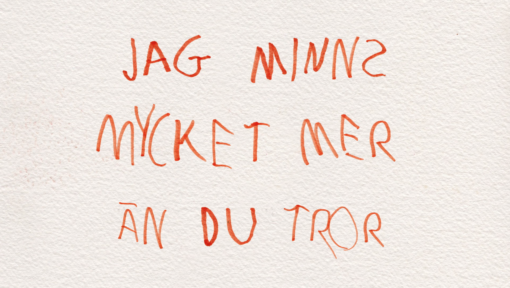 JAG MINNS
MYCKET MER
ÄN DU TROR